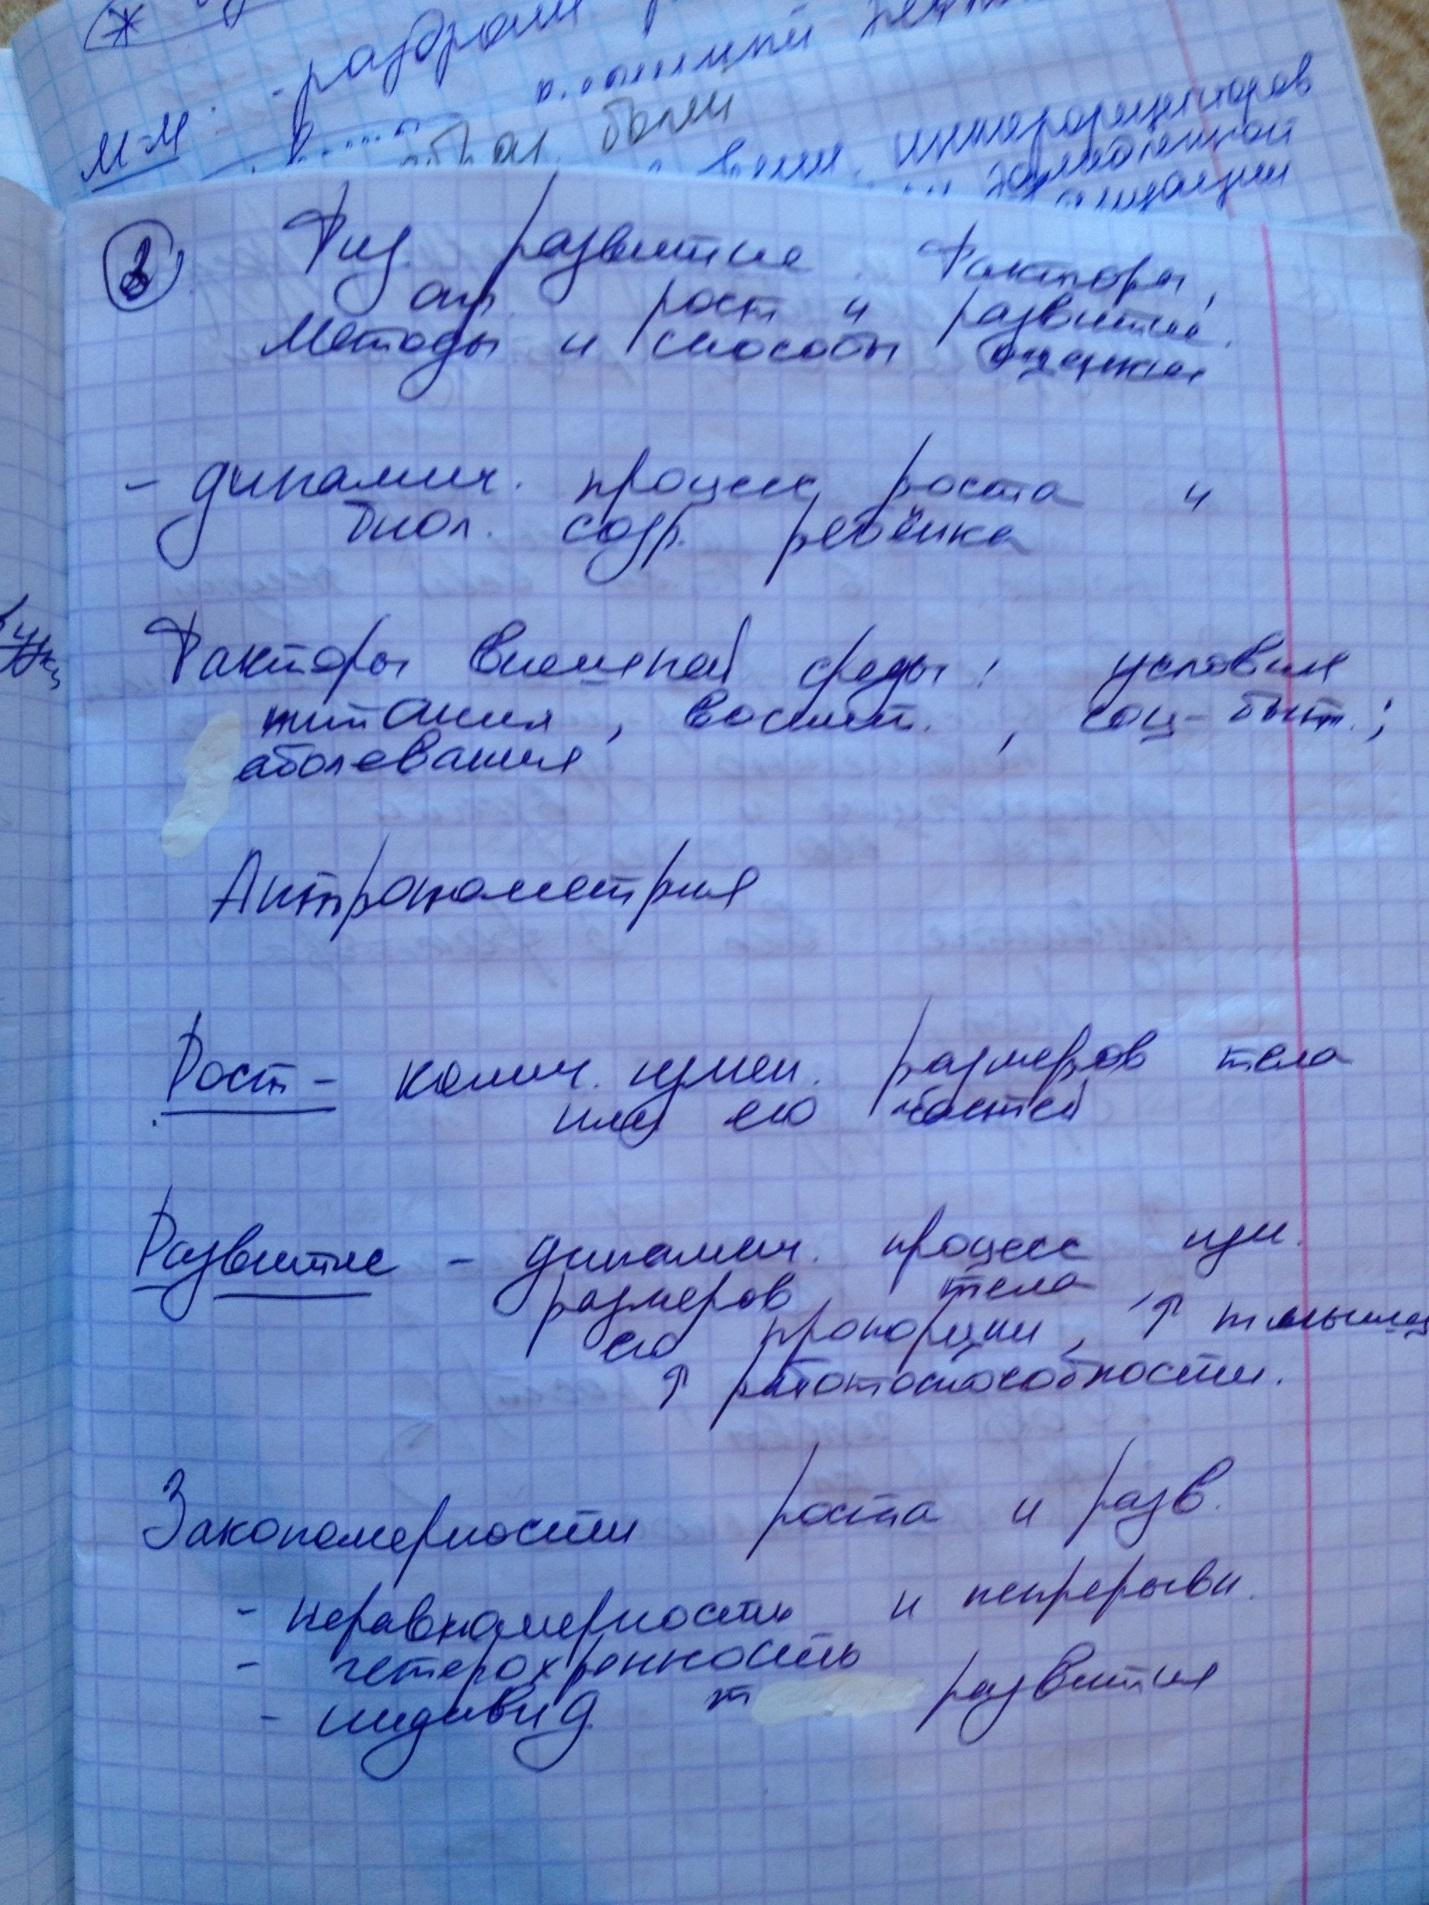 М-М:
раздраж
обол. боли
интерорецепторов
замедленной
Физ. развитие. Факторы,
опр. рост и развитие.
Методы и способы оценки
- динамич. процесс роста и
биол. созр. ребёнка
Факторы внешней среды: условия
питания, воспит., соц-быт.;
аболевания
Антропометрия
Рост - колич. измен. размеров тела
или его частей
Развитие - динамич. процесс изм.
размеров тела,
его пропорции, ↑ т мышц
↑ работоспособности.
Закономерности роста и разв.
- неравномерность и непрерывн.
- гетерохренность
- индивид. т развития